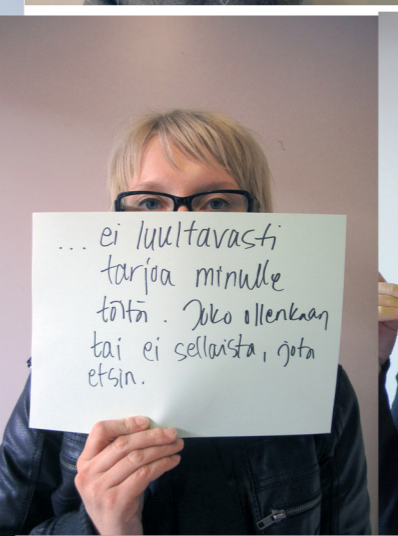 ... ei luultavasti
tarjoa minulle
töitä. Joko ollenkaan
tai ei sellaista, jota
etsin.